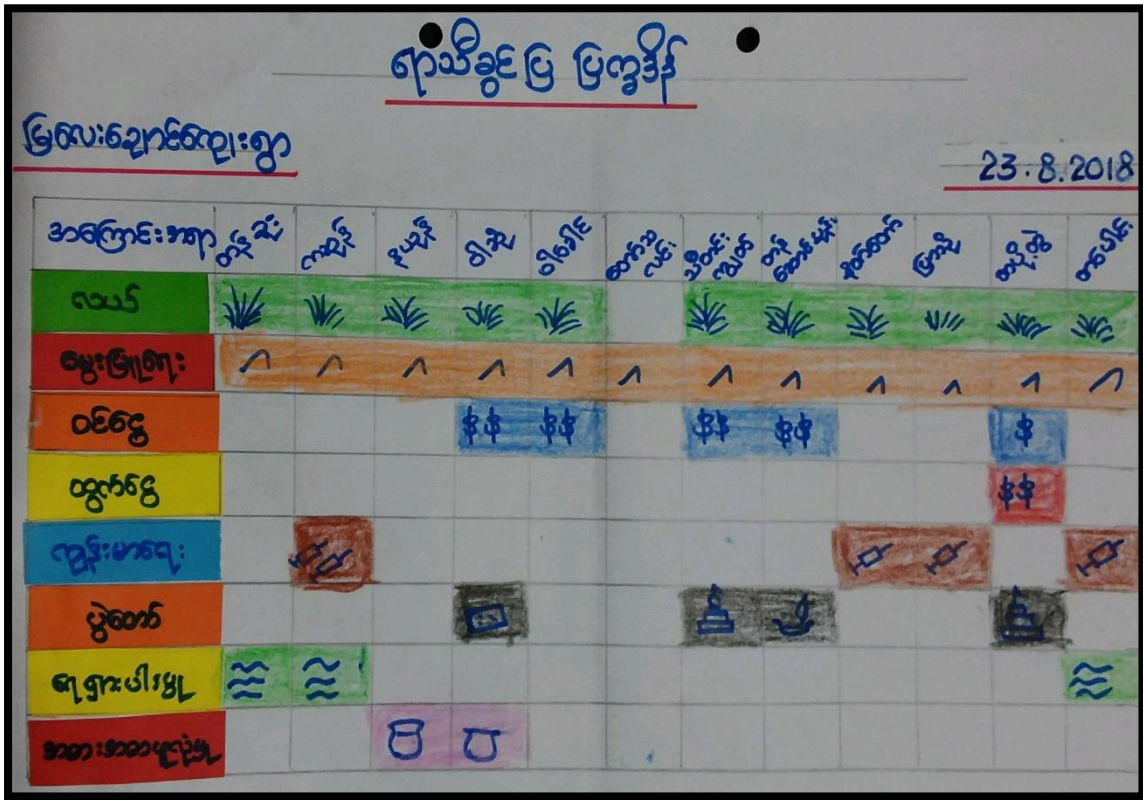 ရာသီခွင် ပြ ပြက္ခဒိန်
မြလေးချောင်ကျေးရွာ
23.8.2018
အကြောင်းအရာ တန်ခူး ကဆုန် နယုန် ဝါဆို ဝါခေါင် တော်သလင်း သီတင်းကျွတ် တန်ဆောင်မုန်း နတ်တော် ပြာသို တပို့တွဲ တပေါင်း
လယ်
မွေးမြူရေး
ဝင်ငွေ $$ $$ $$ $$ $
ထွက်ငွေ $$
ကျွန်းမာရေး
ပွဲတော်
ရေရှားပါးမှု
အစားအစာမလုံမှု